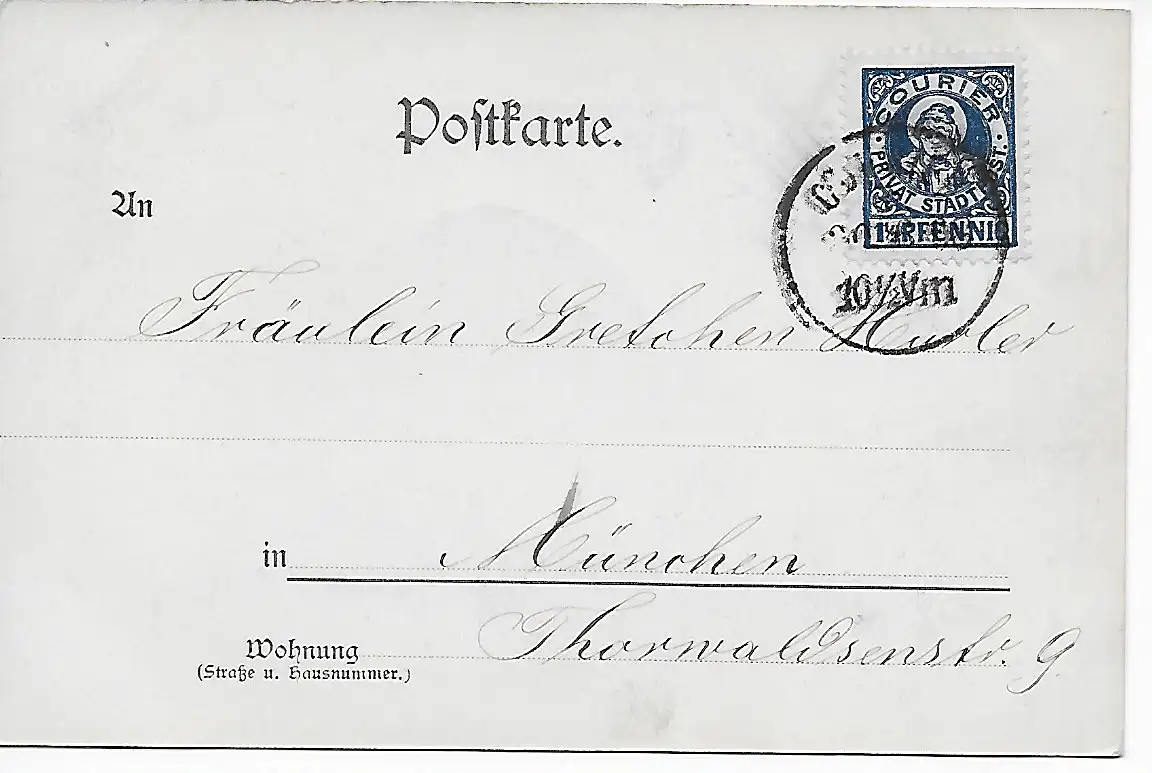 Postkarte.
COURIER
PRIVAT STADTPOST.
1½ PFENNIG
10½ Vm
An
Fräulein Gretchen
in München
Wohnung Thorwaldsenstr. 9
(Straße u. Hausnummer.)